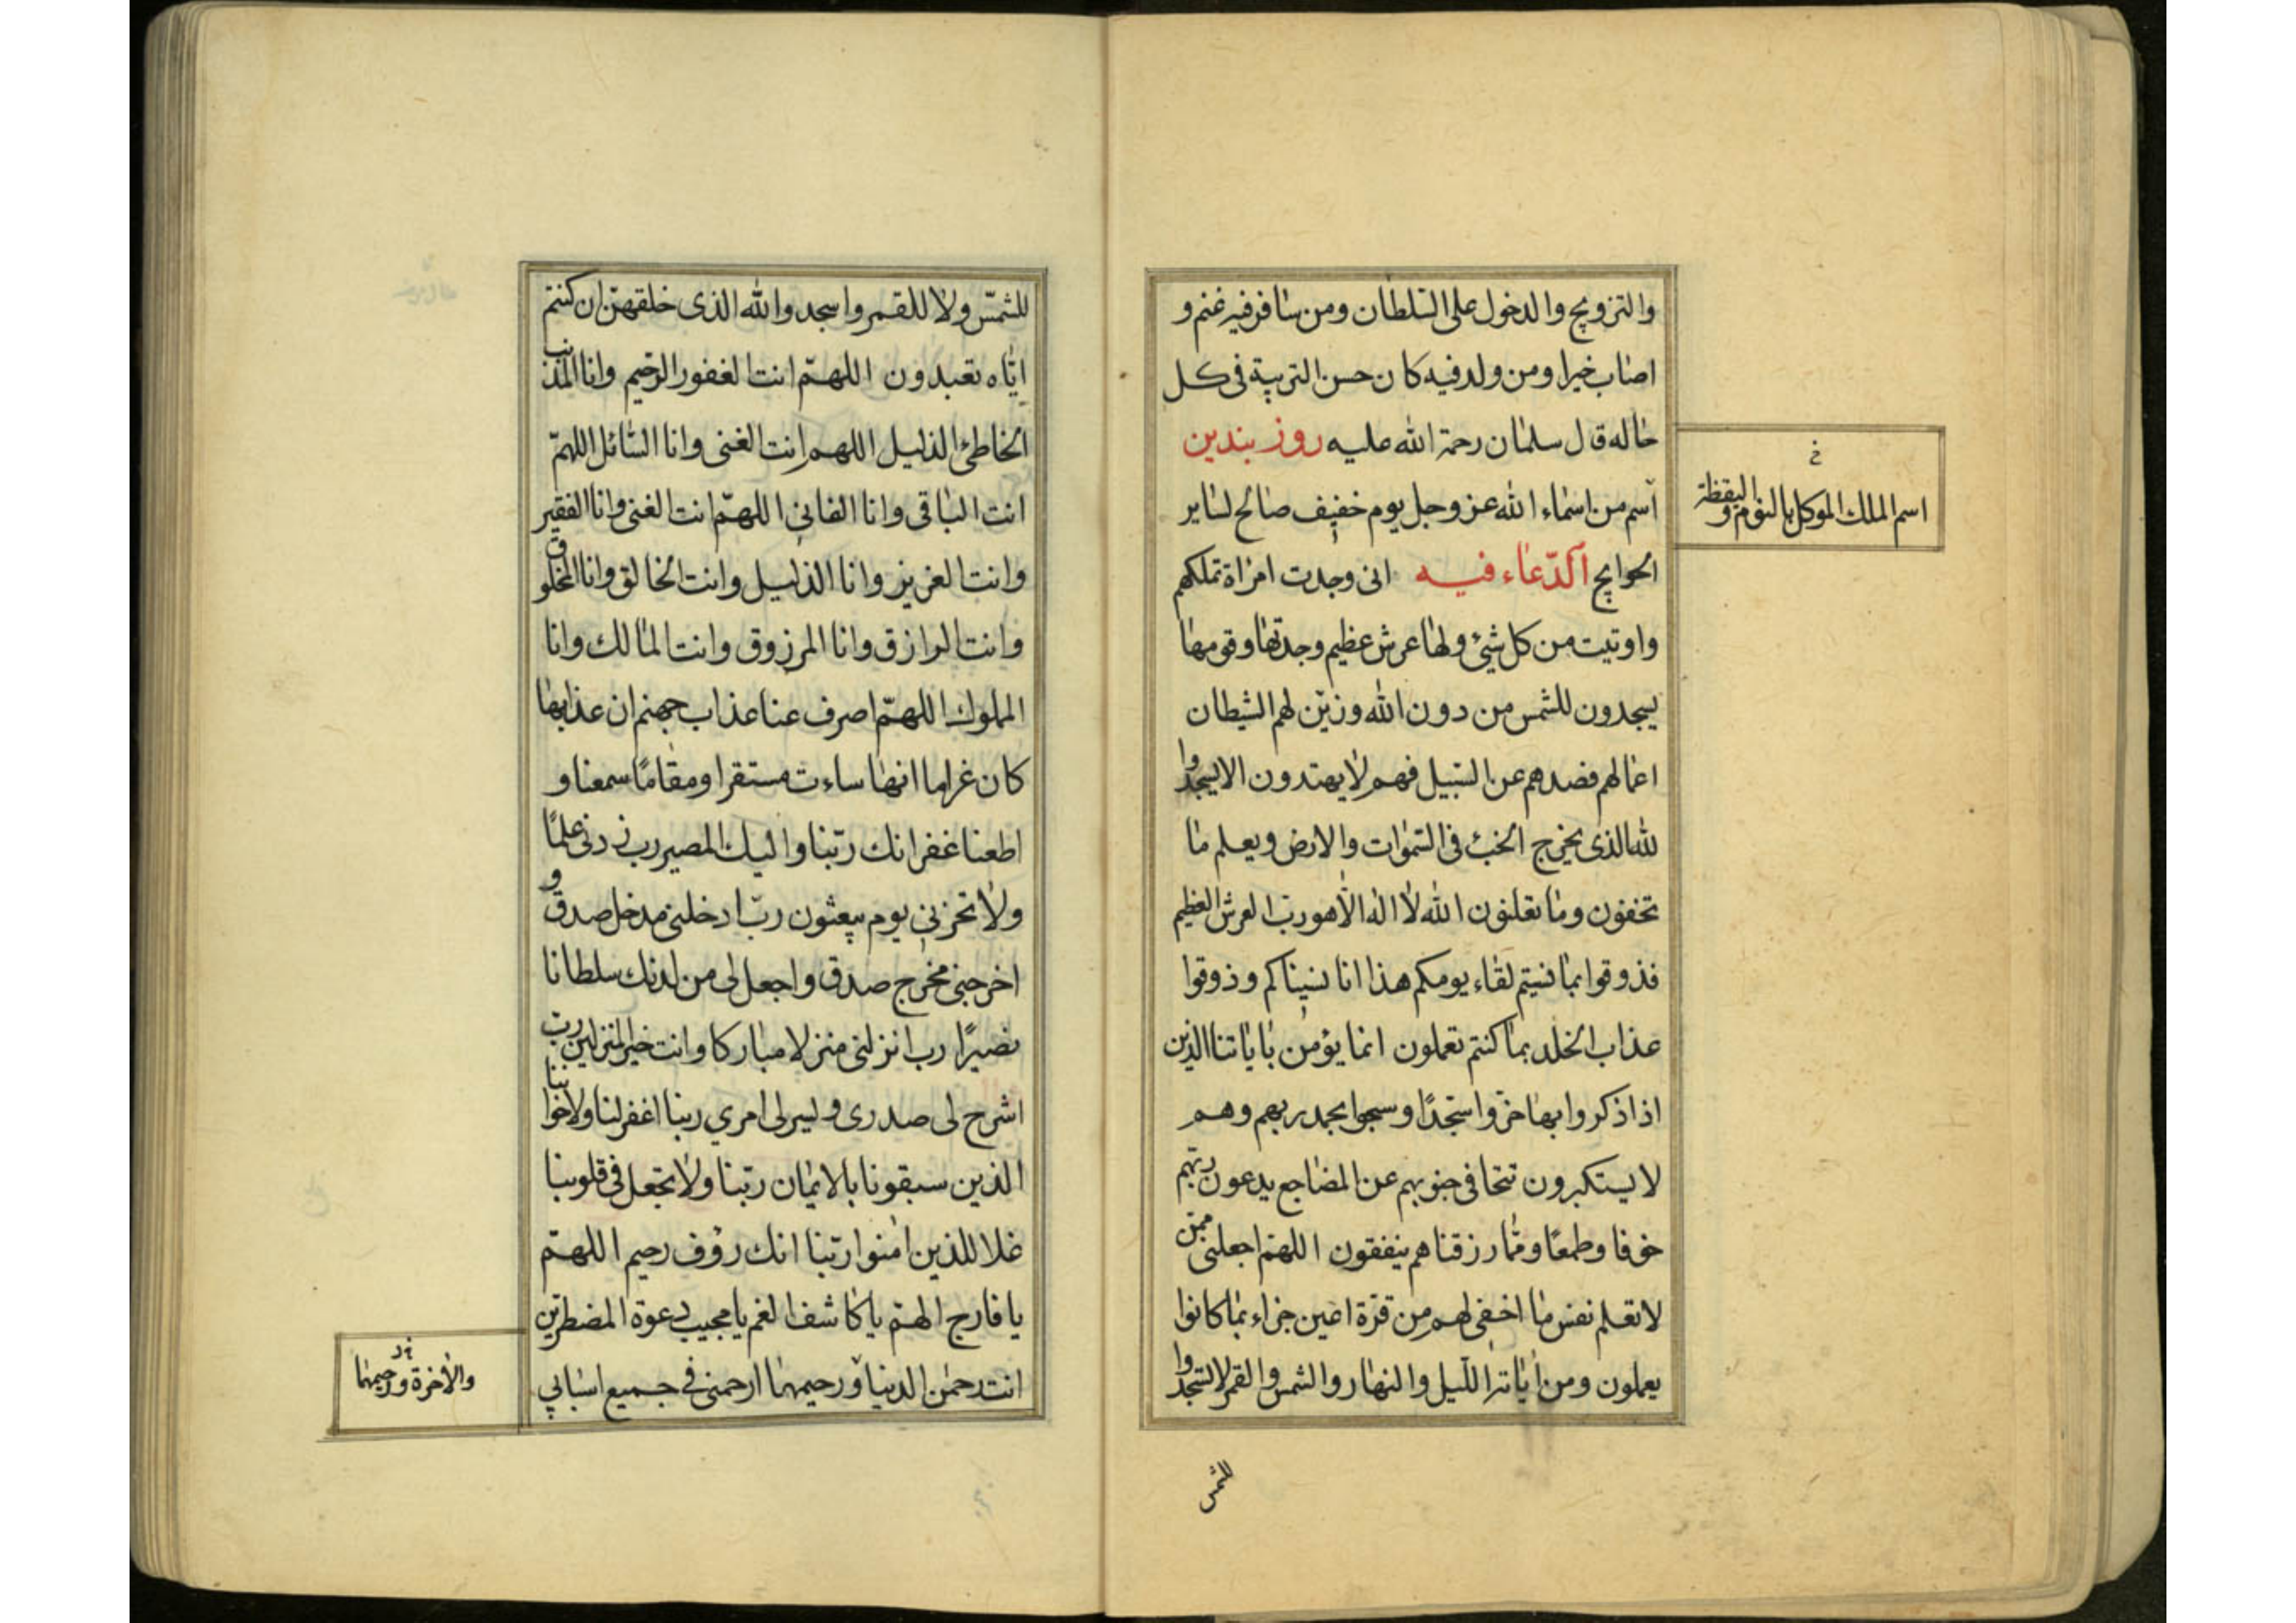 والتزويج والدخول على السلطان ومن سافر فيه غنم و
اصاب خيرا ومن ولد فيه كان حسن التربية فى كل
حاله قال سلمان رحمة الله عليه روز بندين
اسم من اسماء الله عز وجل يوم خفيف صالح لساير
الحوايج الدعاء فيه انى وجدت امراة تملكهم
واوتيت من كل شيئ ولها عرش عظيم وجدتها وقومها
يسجدون للشمس من دون الله وزين لهم الشيطان
اعمالهم فصدهم عن السبيل فهم لا يهتدون الا يسجدوا
لله الذى يخرج الخبئ فى السموات والارض ويعلم ما
تخفون وما تعلنون الله لا اله الا هو رب العرش العظيم
فذوقوا بما نسيتم لقاء يومكم هذا انا نسيناكم وذوقوا
عذاب الخلد بما كنتم تعملون انما يؤمن باياتنا الذين
اذا ذكروا بها خروا سجدًا وسبحوا بحمد ربهم وهم
لا يستكبرون تتجافى جنوبهم عن المضاجع يدعون ربهم
خوفا وطمعًا ومما رزقناهم ينفقون اللهم اجعلنى ممن
لا تعلم نفس ما اخفى لهم من قرة اعين جزاء بما كانوا
يعملون ومن اياته الليل والنهار والشمس والقمر لا تسجدوا
للشمس
خ
اسم الملك الموكل بالنوم واليقظة
للشمس ولا للقمر واسجدوا لله الذى خلقهن ان كنتم
اياه تعبدون اللهم انت الغفور الرحيم وانا المذنب
الخاطئ الذليل اللهم انت الغنى وانا السائل اللهم
انت الباقى وانا الفانى اللهم انت الغنى وانا الفقير
وانت العزيز وانا الذليل وانت الخالق وانا المخلوق
وانت الرازق وانا المرزوق وانت المالك وانا
المملوك اللهم اصرف عنا عذاب جهنم ان عذابها
كان غراما انها ساءت مستقرا ومقامًا سمعنا و
اطعنا غفرانك ربنا واليك المصير رب زدنى علمًا
ولا تخزنى يوم يبعثون رب ادخلنى مدخل صدق و
اخرجنى مخرج صدق واجعل لى من لدنك سلطانا
نصيرًا رب انزلنى منزلا مباركا وانت خير المنزلين رب
اشرح لى صدرى ويسر لى امري ربنا اغفر لنا ولاخواننا
الذين سبقونا بالايمان ربنا ولا تجعل فى قلوبنا
غلا للذين امنوا ربنا انك رؤف رحيم اللهم
يا فارج الهم يا كاشف الغم يا مجيب دعوة المضطرين
انت رحمن الدنيا ورحيمهما ارحمنى فى جميع اسبابي
والاخرة ورحيمهما